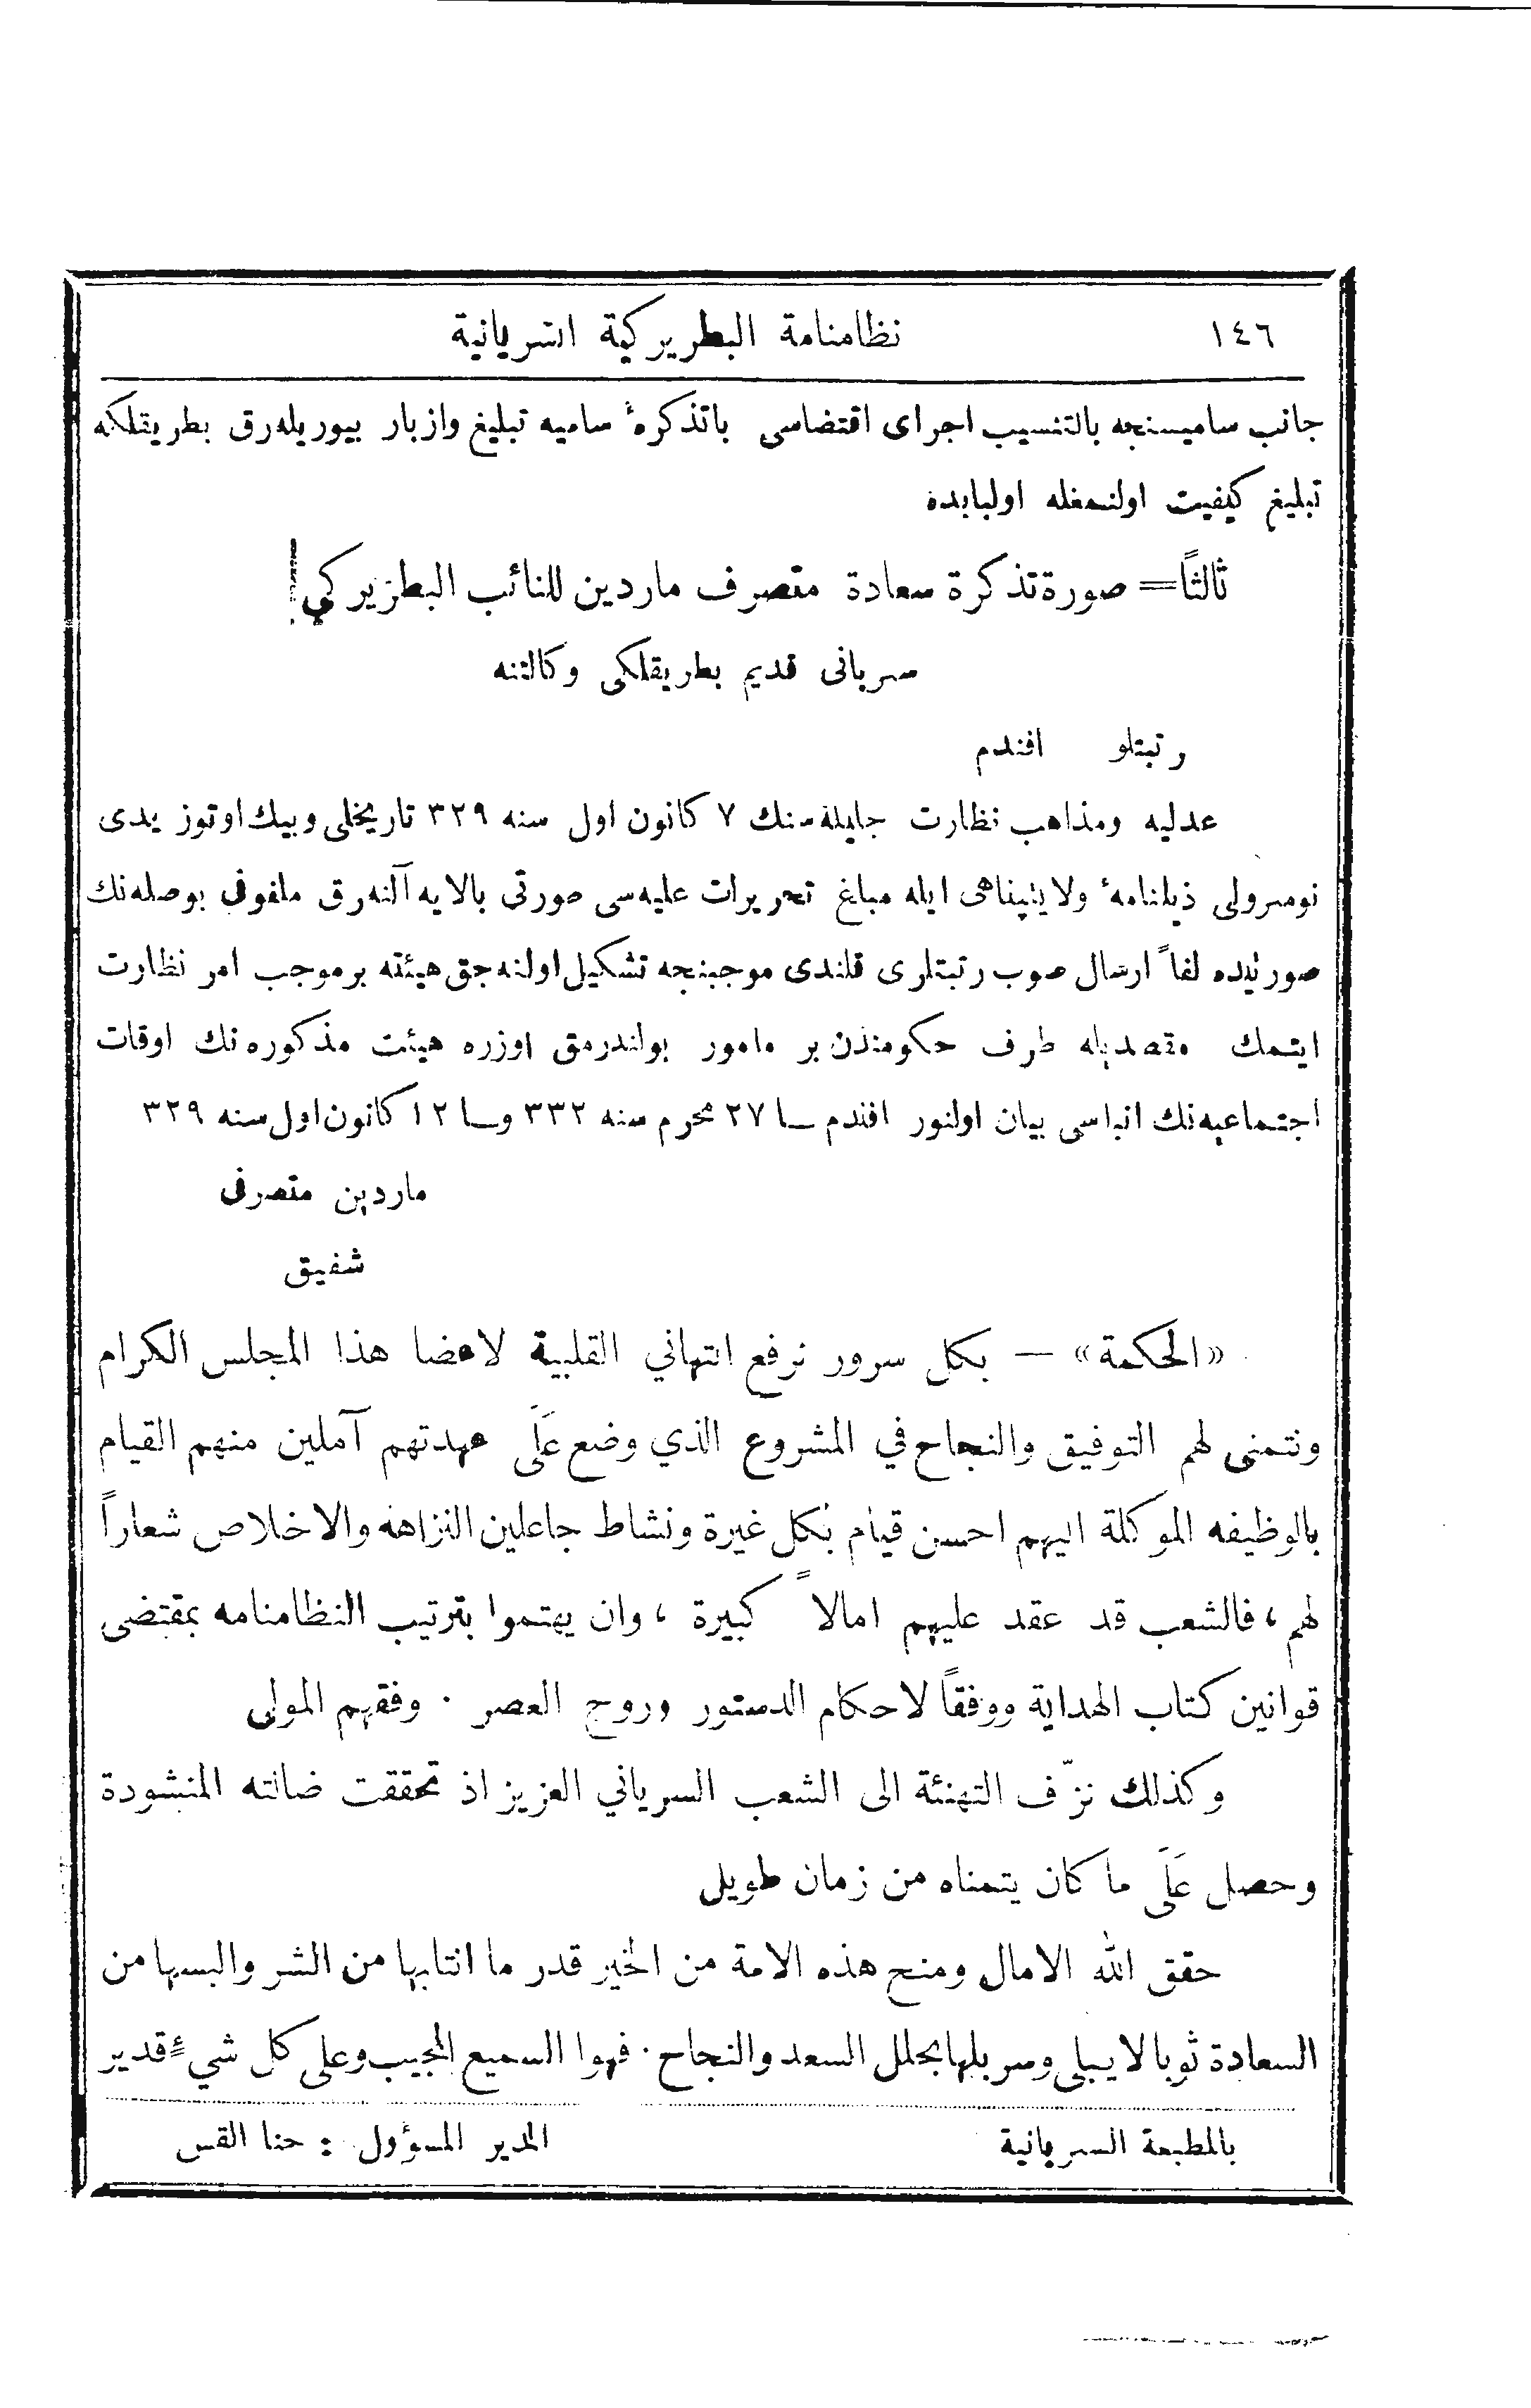 ١٤٦ نظامنامة البطريركية السريانية
جانب ساميسنجه بالتنسيب اجراى اقتضاسى باتذكرهٔ ساميه تبليغ وازبار بيوريله‌رق بطريقلكه
تبليغ كيفيت اولنمغله اولبابده
ثالثاً = صورة تذكرة سعادة متصرف ماردين للنائب البطريركي
سريانى قديم بطريقلكى وكالتنه
رتبتلو افندم
عدليه ومذاهب نظارت جليله‌سنك ٧ كانون اول سنه ٣٢٩ تاريخلى وبيك اوتوز يدى
نومرولى ذيلنامهٔ ولايتپناهى ايله مبلغ تحريرات عليه‌سى صورتى بالايه آلنه‌رق ملفوفى بوصله‌نك
صورتيده لفاً ارسال صوب رتبتلرى قلندى موجبنجه تشكيل اولنه‌جق هيئته برموجب امر نظارت
ايتمك مقصديله طرف حكومتدن بر مامور بولندرمق اوزره هيئت مذكوره‌نك اوقات
اجتماعيه‌نك انباسى بيان اولنور افندم ــا ٢٧ محرم سنه ٣٣٢ وــا ١٢ كانون اول سنه ٣٢٩
ماردين متصرفى
شفيق
«الحكمة» — بكل سرور نرفع التهاني القلبية لاعضا هذا المجلس الكرام
ونتمنى لهم التوفيق والنجاح في المشروع الذي وضع عَلَى عهدتهم آملين منهم القيام
بالوظيفه الموكلة اليهم احسن قيام بكل غيرة ونشاط جاعلين النزاهه والاخلاص شعاراً
لهم ، فالشعب قد عقد عليهم امالاً كبيرة ، وان يهتموا بترتيب النظامنامه بمقتضى
قوانين كتاب الهداية ووفقاً لاحكام الدستور وروح العصر . وفقهم المولى
وكذلك نزّف التهنئة الى الشعب السرياني العزيز اذ تحققت ضالته المنشودة
وحصل عَلَى ما كان يتمناه من زمان طويل
حقق الله الامال ومنح هذه الامة من الخير قدر ما انتابها من الشر والبسها من
السعادة ثوبا لا يبلى وسربلها بحلل السعد والنجاح . فهوا السميع المجيب وعلى كل شيءٍ قدير
بالمطبعة السريانية المدير المسؤول : حنا القس